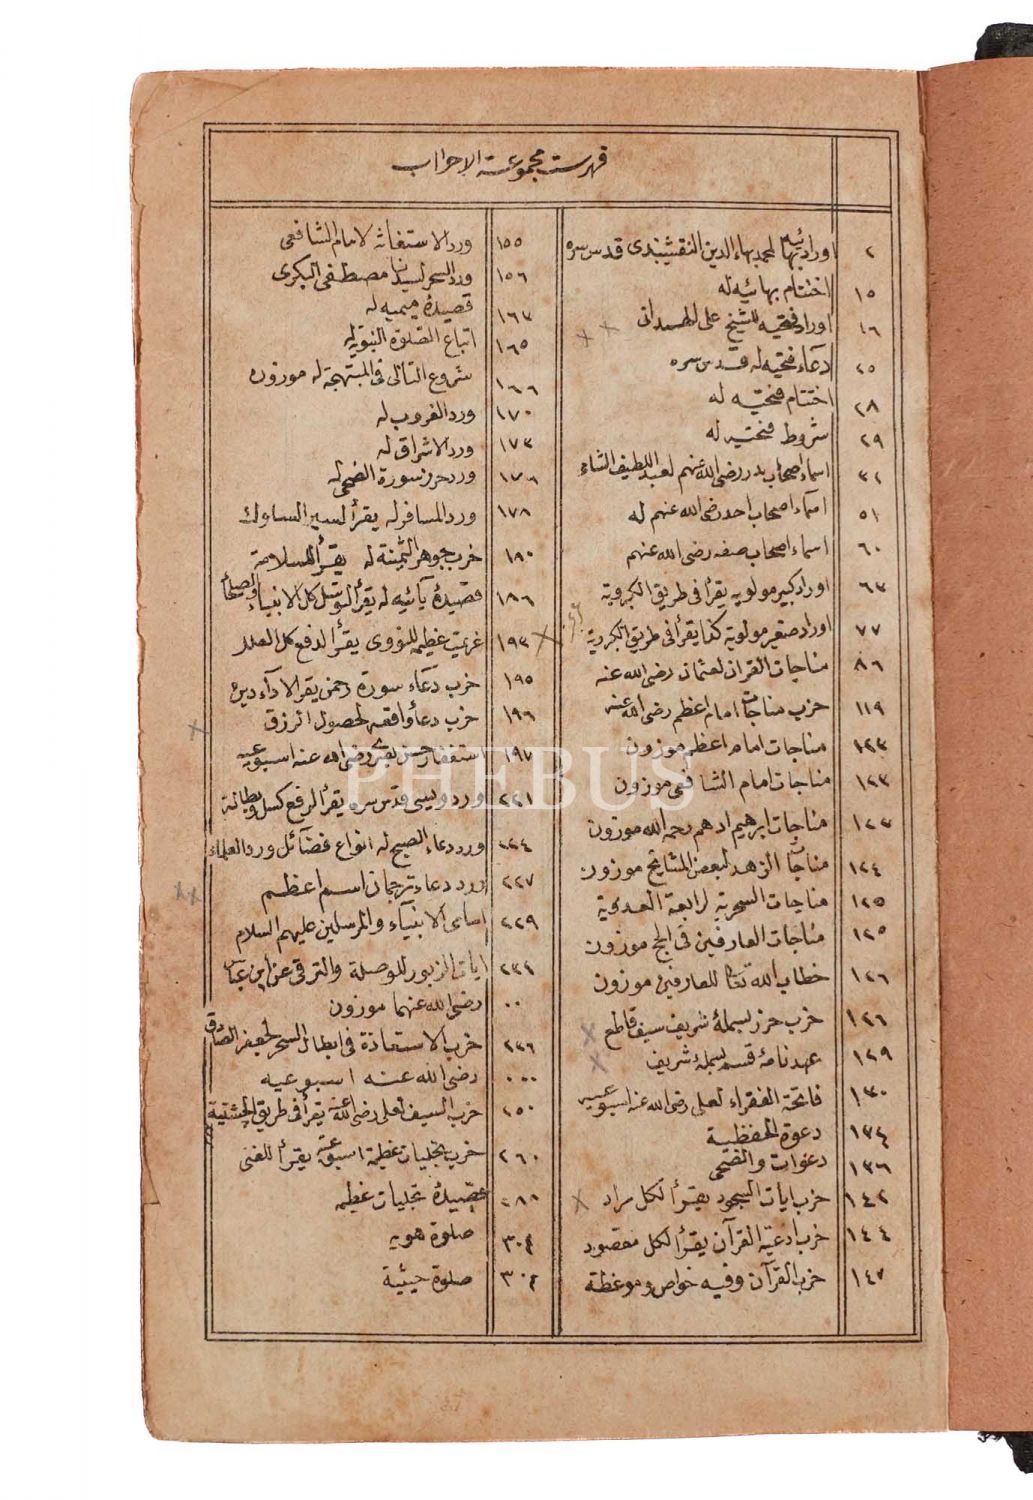 فهرست مجموعة الاحزاب
٢ اوراد بهائيه لمحمد بهاء الدين النقشبندى قدس سره
١٥ اختتام بهائيه له
١٦ اوراد فتحيه للشيخ على الهمدانى
٢٥ دعاء فتحيه له قدس سره
٢٨ اختتام فتحيه له
٢٩ شروط فتحيه له
اسماء اصحاب بدر رضى الله عنهم لعبد اللطيف الشامى
٥١ اسماء اصحاب احد رضى الله عنهم له
٦٠ اسماء اصحاب صفه رضى الله عنهم
٦٣ اوراد كبير مولويه يقرأ فى طريق الكبروية
٧٧ اوراد صغير مولوية كذا يقرأ فى طريق الكبروية
٨٦ مناجات القرآن لعثمان رضى الله عنه
١١٩ حزب مناجات امام اعظم رضى الله عنه
١٢٣ مناجات امام اعظم موزون
١٢٣ مناجات امام الشافعى موزون
١٢٣ مناجات ابرهيم ادهم رحمه الله موزون
١٢٤ مناجات الزهد لبعض المشايخ موزون
١٢٥ مناجات السحرية لرابعة العدوية
١٢٥ مناجات العارفين فى الحج موزون
١٢٦ خطاب الله تعا للعارفين موزون
١٢٦ حزب حرز بسملۀ شريف سيف قاطع
١٢٩ عهدنامۀ قسم بسملۀ شريف
١٣٠ فاتحة الفقراء لعلى رضى الله عنه اسبوعيه
١٣٤ دعوة الحفظية
١٣٦ دعوات والضحى
١٤٢ حزب ايات السجود يقرأ لكل مراد
١٤٤ حزب ادعية القرآن يقرأ لكل مقصود
١٤٧ حزب القرآن وفيه خواص وموعظة
١٥٥ ورد الاستغاثه لامام الشافعى
١٥٦ ورد السحر لسيدنا مصطفى البكرى
١٦٣ قصيدۀ ميميه له
١٦٥ اتباع الصلوة النبويه له
١٦٦ شروع التالى فى المبتهجة له موزون
١٧٠ ورد الغروب له
١٧٣ ورد الاشراق له
١٧٦ ورد حرز سورة الضحى له
١٧٨ ورد المسافر له يقرأ لسير السلوك
١٨٠ حزب جوهر الثمينة له يقرأ للسلامة
١٨٦ قصيدۀ يائيه له يقرأ لتوسل كل الانبياء والصلحا
١٩٣ عزيمت عظيمه للنووى يقرأ لدفع كل العلل
١٩٥ حزب دعاء سورة رحمن يقرأ لاداء ديره
١٩٦ حزب دعاء واقعه لحصول الرزق
١٩٧ استغفار حسن بصرى رضى الله عنه اسبوعيه
٢٢١ ورد ويسى قدس سره يقرأ لرفع كسل وبطائة
٢٢٤ ورد دعاء الصبح له انواع فضائل ورد العلماء
٢٢٧ ورد دعاء ترجمان اسم اعظم
٢٢٩ اسامى الانبياء والمرسلين عليهم السلام
٢٣٤ ايات الزبور للوصلة والترقى عن ابن عباس
٠٠ رضى الله عنهما موزون
٢٣٦ حزب الاستعاذة فى ابطال السحر لجعفر الصادق
٠٠٠ رضى الله عنه اسبوعيه
٢٥٠ حزب السيف لعلى رضى الله عنه يقرأ فى طريق الچشتية
٢٦٠ حزب تجليات عظيمة اسبوعية يقرأ للغنى
٢٨٨ قصيدۀ تجليات عظيمه
٣٠٤ صلوة هويه
٣٠٤ صلوة حيثية
PHEBUS